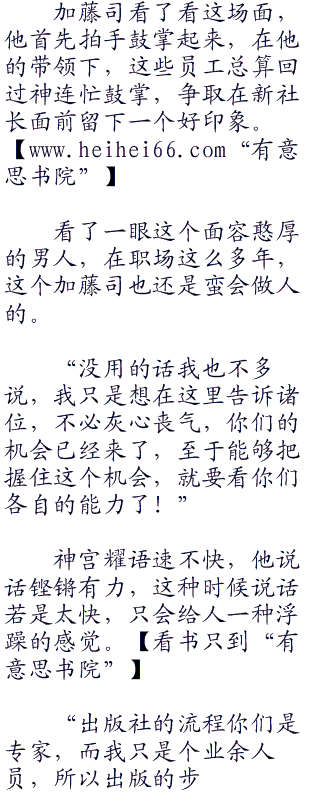 加藤司看了看这场面，
他首先拍手鼓掌起来，在他
的带领下，这些员工总算回
过神连忙鼓掌，争取在新社
长面前留下一个好印象。
【www.heihei66.com“有意
思书院”】
看了一眼这个面容憨厚
的男人，在职场这么多年，
这个加藤司也还是蛮会做人
的。
“没用的话我也不多
说，我只是想在这里告诉诸
位，不必灰心丧气，你们的
机会已经来了，至于能够把
握住这个机会，就要看你们
各自的能力了！”
神宫耀语速不快，他说
话铿锵有力，这种时候说话
若是太快，只会给人一种浮
躁的感觉。【看书只到“有
意思书院”】
“出版社的流程你们是
专家，而我只是个业余人
员，所以出版的步